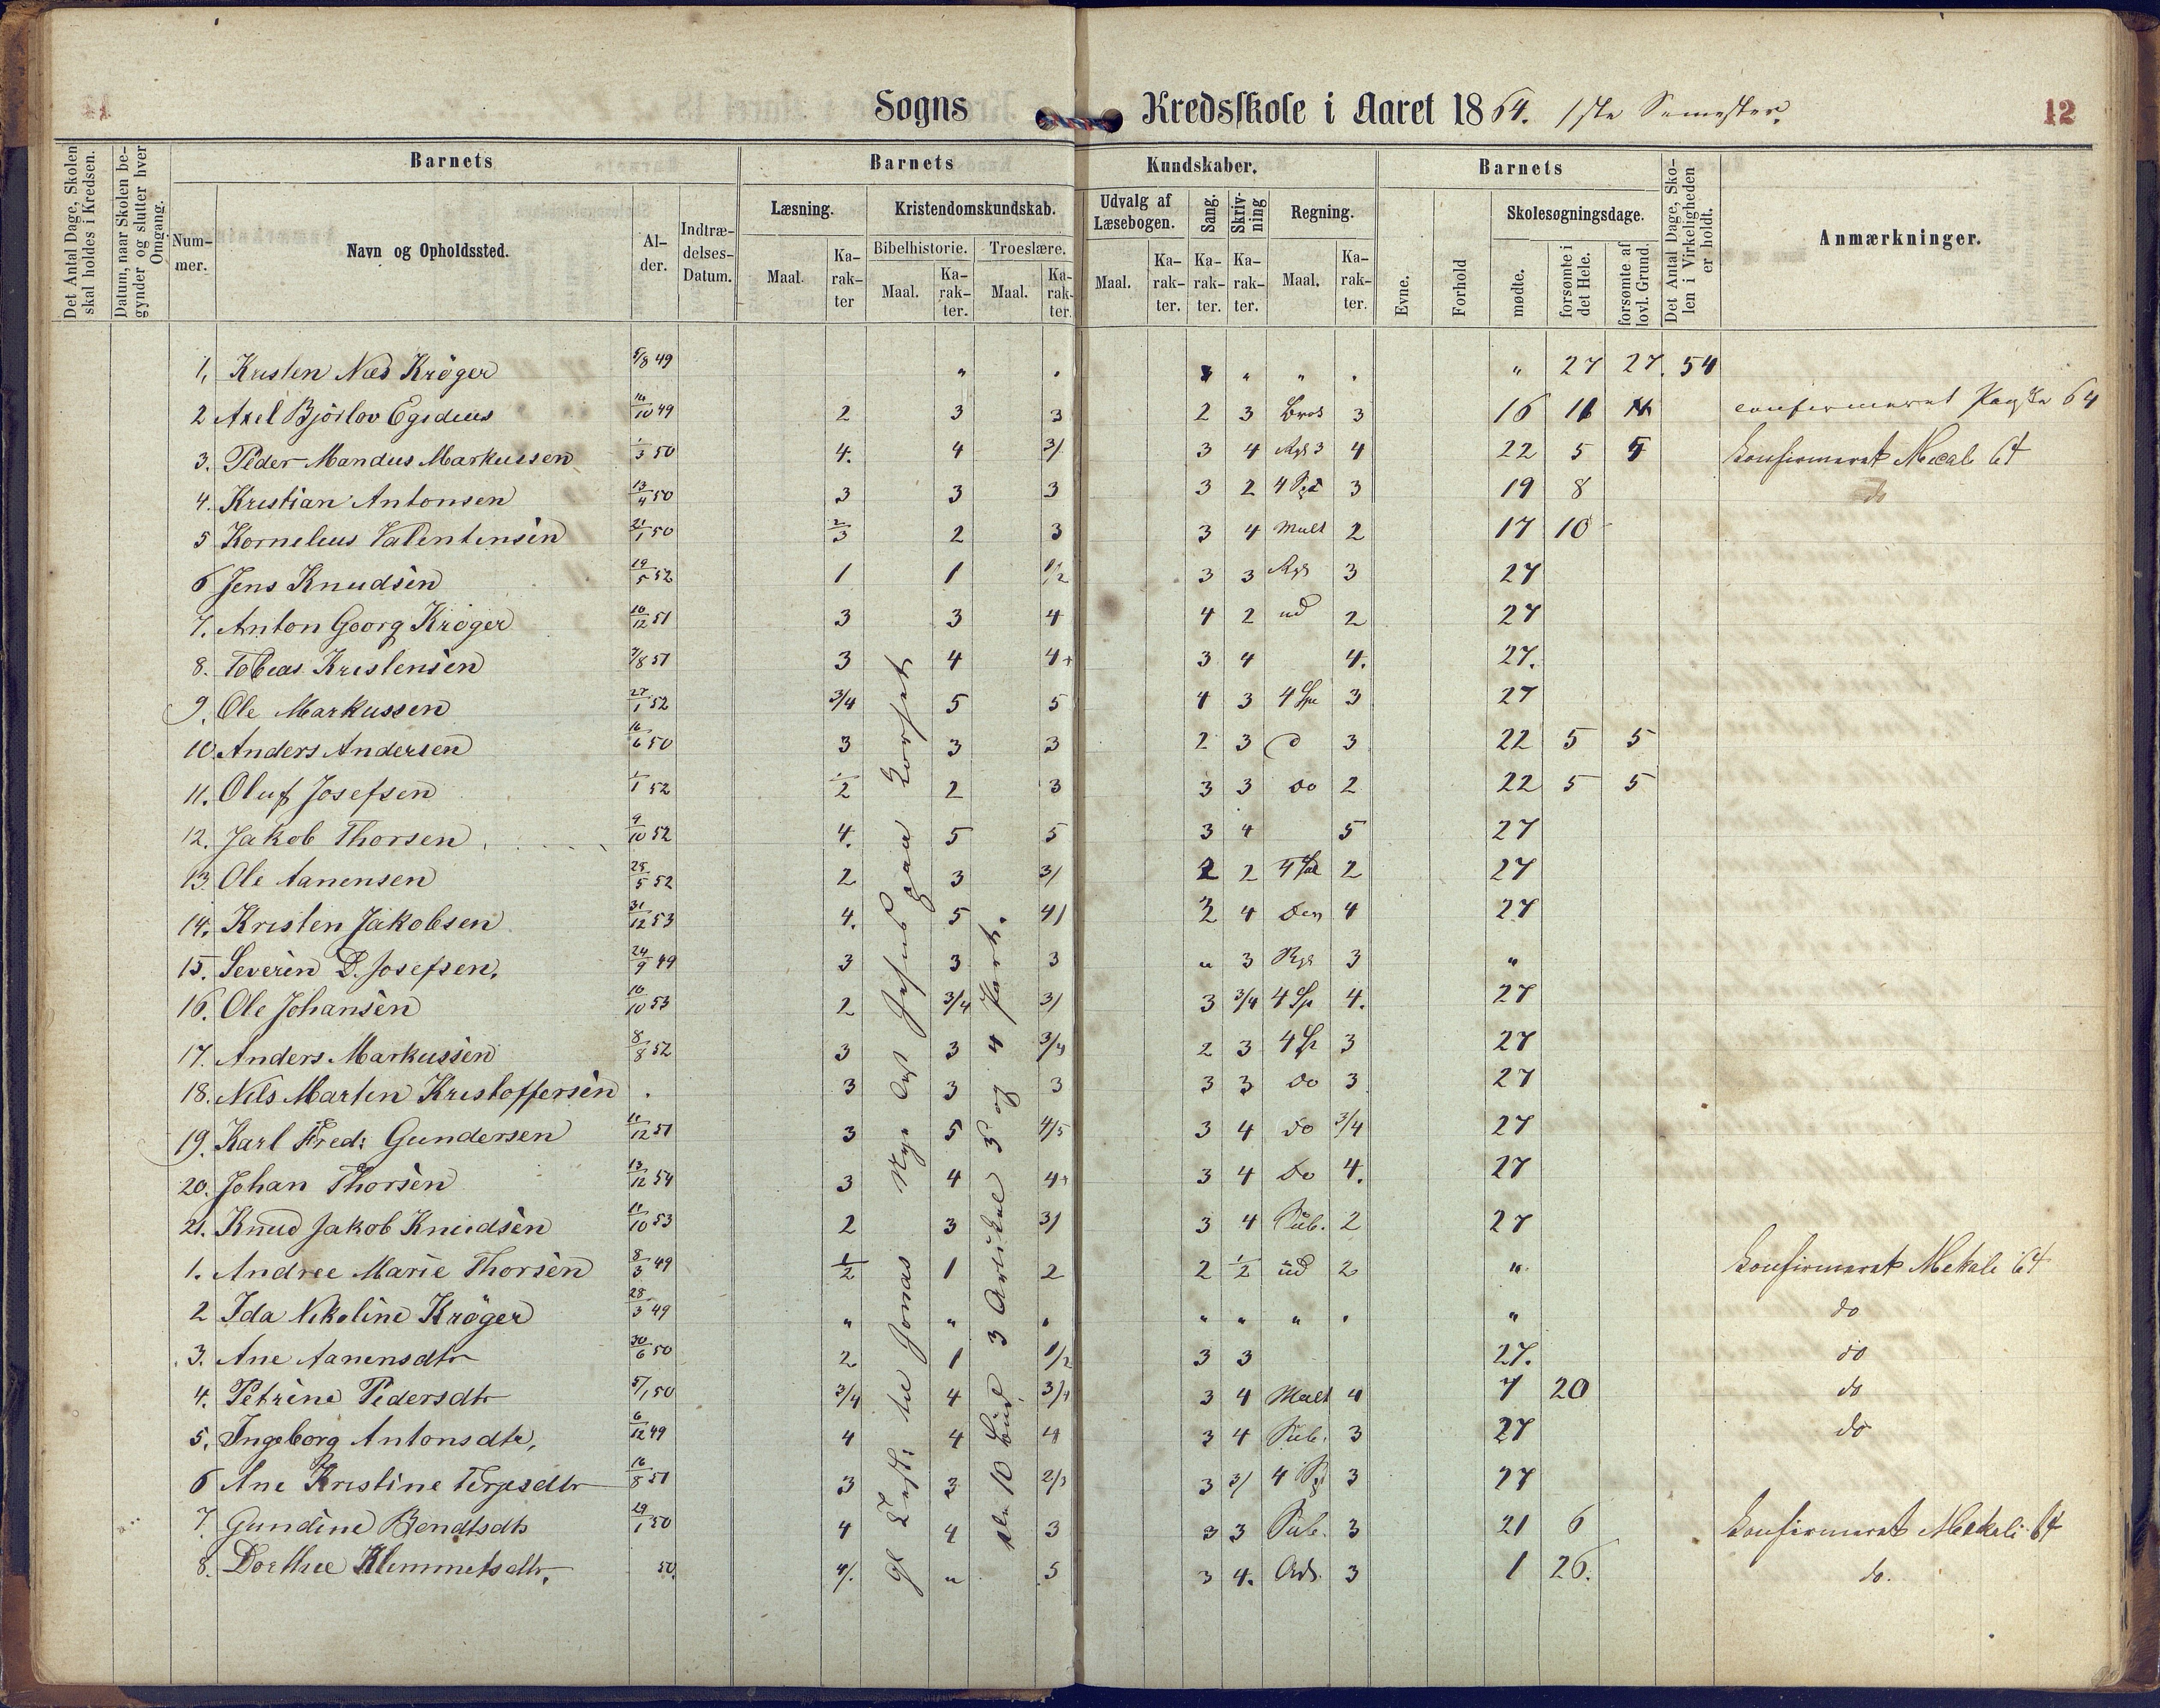 Sogns Kredsskole i Aaret 1864. 1ste Semester. 12
Det Antal Dage, Skolen skal holdes i Kredsen.
Datum, naar Skolen begynder og slutter hver Omgang.
Barnets
Num-mer.
Navn og Opholdssted.
Al-der.
Indtræ-delses-Datum.
Barnets Kundskaber.
Læsning.
Maal. Ka-rak-ter
Kristendomskundskab.
Bibelhistorie. Troeslære.
Maal. Ka-rak-ter. Maal. Ka-rak-ter.
Udvalg af Læsebogen.
Maal. Ka-rak-ter.
Sang. Ka-rak-ter.
Skriv-ning Ka-rak-ter.
Regning.
Maal. Ka-rak-ter.
Barnets
Evne. Forhold
Skolesøgningsdage.
mødte. forsømte i det Hele. forsømte af lovl. Grund.
Det Antal Dage, Sko-len i Virkeligheden er holdt.
Anmærkninger.
1, Kristen Kröger 5/8 49 " " " 27 27. 54
2 Axel Bjorlov Egidius 10 49 2 3 3 2 3 3 16 11 confirmeret 64
3. Peder Mandus Markussen 50 4. 4 3/ 3 4 Rgd 3 4 22 5 5 Konfirmeret 64
4. Kristian Antonsen 13/4 50 3 3 3 3 2 3 19 8 do
5 Kornelius Valentinsen 21/1 50 2/3 2 3 3 4 Mult 2 17 10
6 Jens Knudsen 19/5 52 1 1 1/2 3 3 3 27
7. Anton Georg Kröger 10/12 51 3 3 4 4 2 ud 2 27
8. Tobias Kristensen 51 3 4 4+ 3 4 4. 27.
9. Ole Markussen 27/1 52 3/4 5 5 4 3 3 27
10. Anders Andersen 16/6 50 3 3 3 2 3 3 22 5 5
11. Oluf Josefsen 1/1 52 1/2 2 3 3 3 do 2 22 5 5
12. Jakob Thorsen 9/10 52 4. 5 5 3 4 5 27
13. Ole Aanensen 25/5 52 2 3 3/ 2 2 2 27
14. Kristen Jakobsen 31/12 53 4. 5 4/ 4 4 27
15. Severin D. Josefsen. 24/9 49 3 3 3 " 3 3 "
16. Ole Johansen 10/10 53 2 3/4 3/ 3 3/4 4 Sp 4. 27
17. Anders Markussen 8/8 52 3 3 3/4 2 3 4 Sp 3 27
18. Nils Martin Kristoffersen 3 3 3 3 3 do 3 27
19. Karl Fred: Gundersen 11/12 51 3 5 4/5 3 4 do 3/4 27
20. Johan Thorsen 13/12 54 3 4 4+ 3 4 do 4. 27
21. Knud Jakob Knudsen 11/10 53 2 3 3/ 3 4 Sub. 2 27
1. Andree Marie Thorsen 8/3 49 1/2 1 2 2 1/2 ud 2 " Konfirmeret 64
2 Ida Nikoline Kröger 28/3 49 " " " " " " " do
3. Ane Aanensdtr 30/6 50 2 1 1/2 3 3 27. do
4. Petrine Pedersdtr 5/1 50 3/4 4 3/4 3 4 Mult 4 7 20 do
5. Ingeborg Antonsdtr, 6/12 49 4 4 4 3 4 Sub. 3 27 do
6 Ane Kristine Terjesdtr 16/8 51 3 3 2/3 3 3/ 3 27
7. Gundine Bendtsdtr 29/1 50 4 4 3 3 3 Sub. 3 21 6 Konfirmeret 64
8. Dorthee Klemmetsdtr. 50. 4/. " 5 3 4. Ads. 3 1 26. do.
Gl Test: til Jonas Nye Test Jesus paa Korset
10 Bud 3 Artikel 3 og 4 Part.